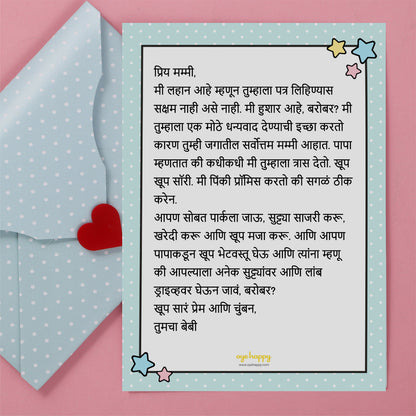 प्रिय मम्मी,
मी लहान आहे म्हणून तुम्हाला पत्र लिहिण्यास
सक्षम नाही असे नाही. मी हुशार आहे, बरोबर? मी
तुम्हाला एक मोठे धन्यवाद देण्याची इच्छा करतो
कारण तुम्ही जगातील सर्वोत्तम मम्मी आहात. पापा
म्हणतात की कधीकधी मी तुम्हाला त्रास देतो. खूप
खूप सॉरी. मी पिंकी प्रॉमिस करतो की सगळं ठीक
करेन.
आपण सोबत पार्कला जाऊ, सुट्ट्या साजरी करू,
खरेदी करू आणि खूप मजा करू. आणि आपण
पापाकडून खूप भेटवस्तू घेऊ आणि त्यांना म्हणू
की आपल्याला अनेक सुट्ट्यांवर आणि लांब
ड्राइव्हवर घेऊन जावं, बरोबर?
खूप सारं प्रेम आणि चुंबन,
तुमचा बेबी
oye happy
www.oyehappy.com